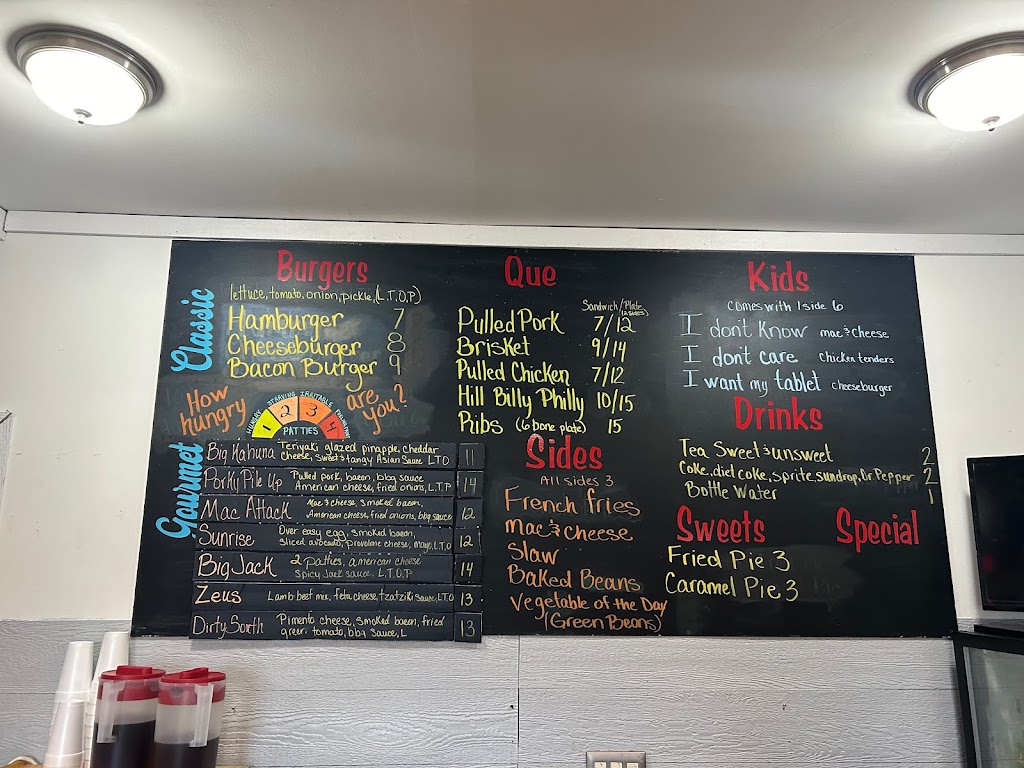 Burgers
Classic
lettuce, tomato, onion, pickle, (L.T.O.P)
Hamburger 7
Cheeseburger 8
Bacon Burger 9
How hungry are you?
HUNGRY STARVING IRRITABLE
1 2 3 4
PATTIES
Gourmet
Big Kahuna Teriyaki glazed pinapple, cheddar cheese, sweet & tangy Asian Sauce LTO 11
Porky Pile Up Pulled pork, bacon, bbq sauce American cheese, fried onions, L.T.P 14
Mac Attack Mac & cheese, smoked bacon, American cheese, fried onions, bbq sauce 12
Sunrise Over easy egg, smoked bacon, sliced avocado, provolone cheese, mayo, L.T.O 12
Big Jack 2 patties, american cheese spicy Jack sauce, L.T.O.P 14
Zeus Lamb-beef mix, feta cheese, tzatziki sauce, L.T.O 13
Dirty South Pimento cheese, smoked bacon, fried green tomato, bbq sauce, L 13
Que
Sandwich/Plate
(2 sides)
Pulled Pork 7/12
Brisket 9/14
Pulled Chicken 7/12
Hill Billy Philly 10/15
Ribs (6 bone plate) 15
Sides
All sides 3
French fries
mac & cheese
Slaw
Baked Beans
Vegetable of the Day
(Green Beans)
Kids
comes with 1 side 6
I don't know mac & cheese
I don't care chicken tenders
I want my tablet cheeseburger
Drinks
Tea Sweet & unsweet 2
Coke, diet coke, sprite, sundrop, Dr Pepper 2
Bottle Water 1
Sweets
Fried Pie 3
Caramel Pie 3
Special